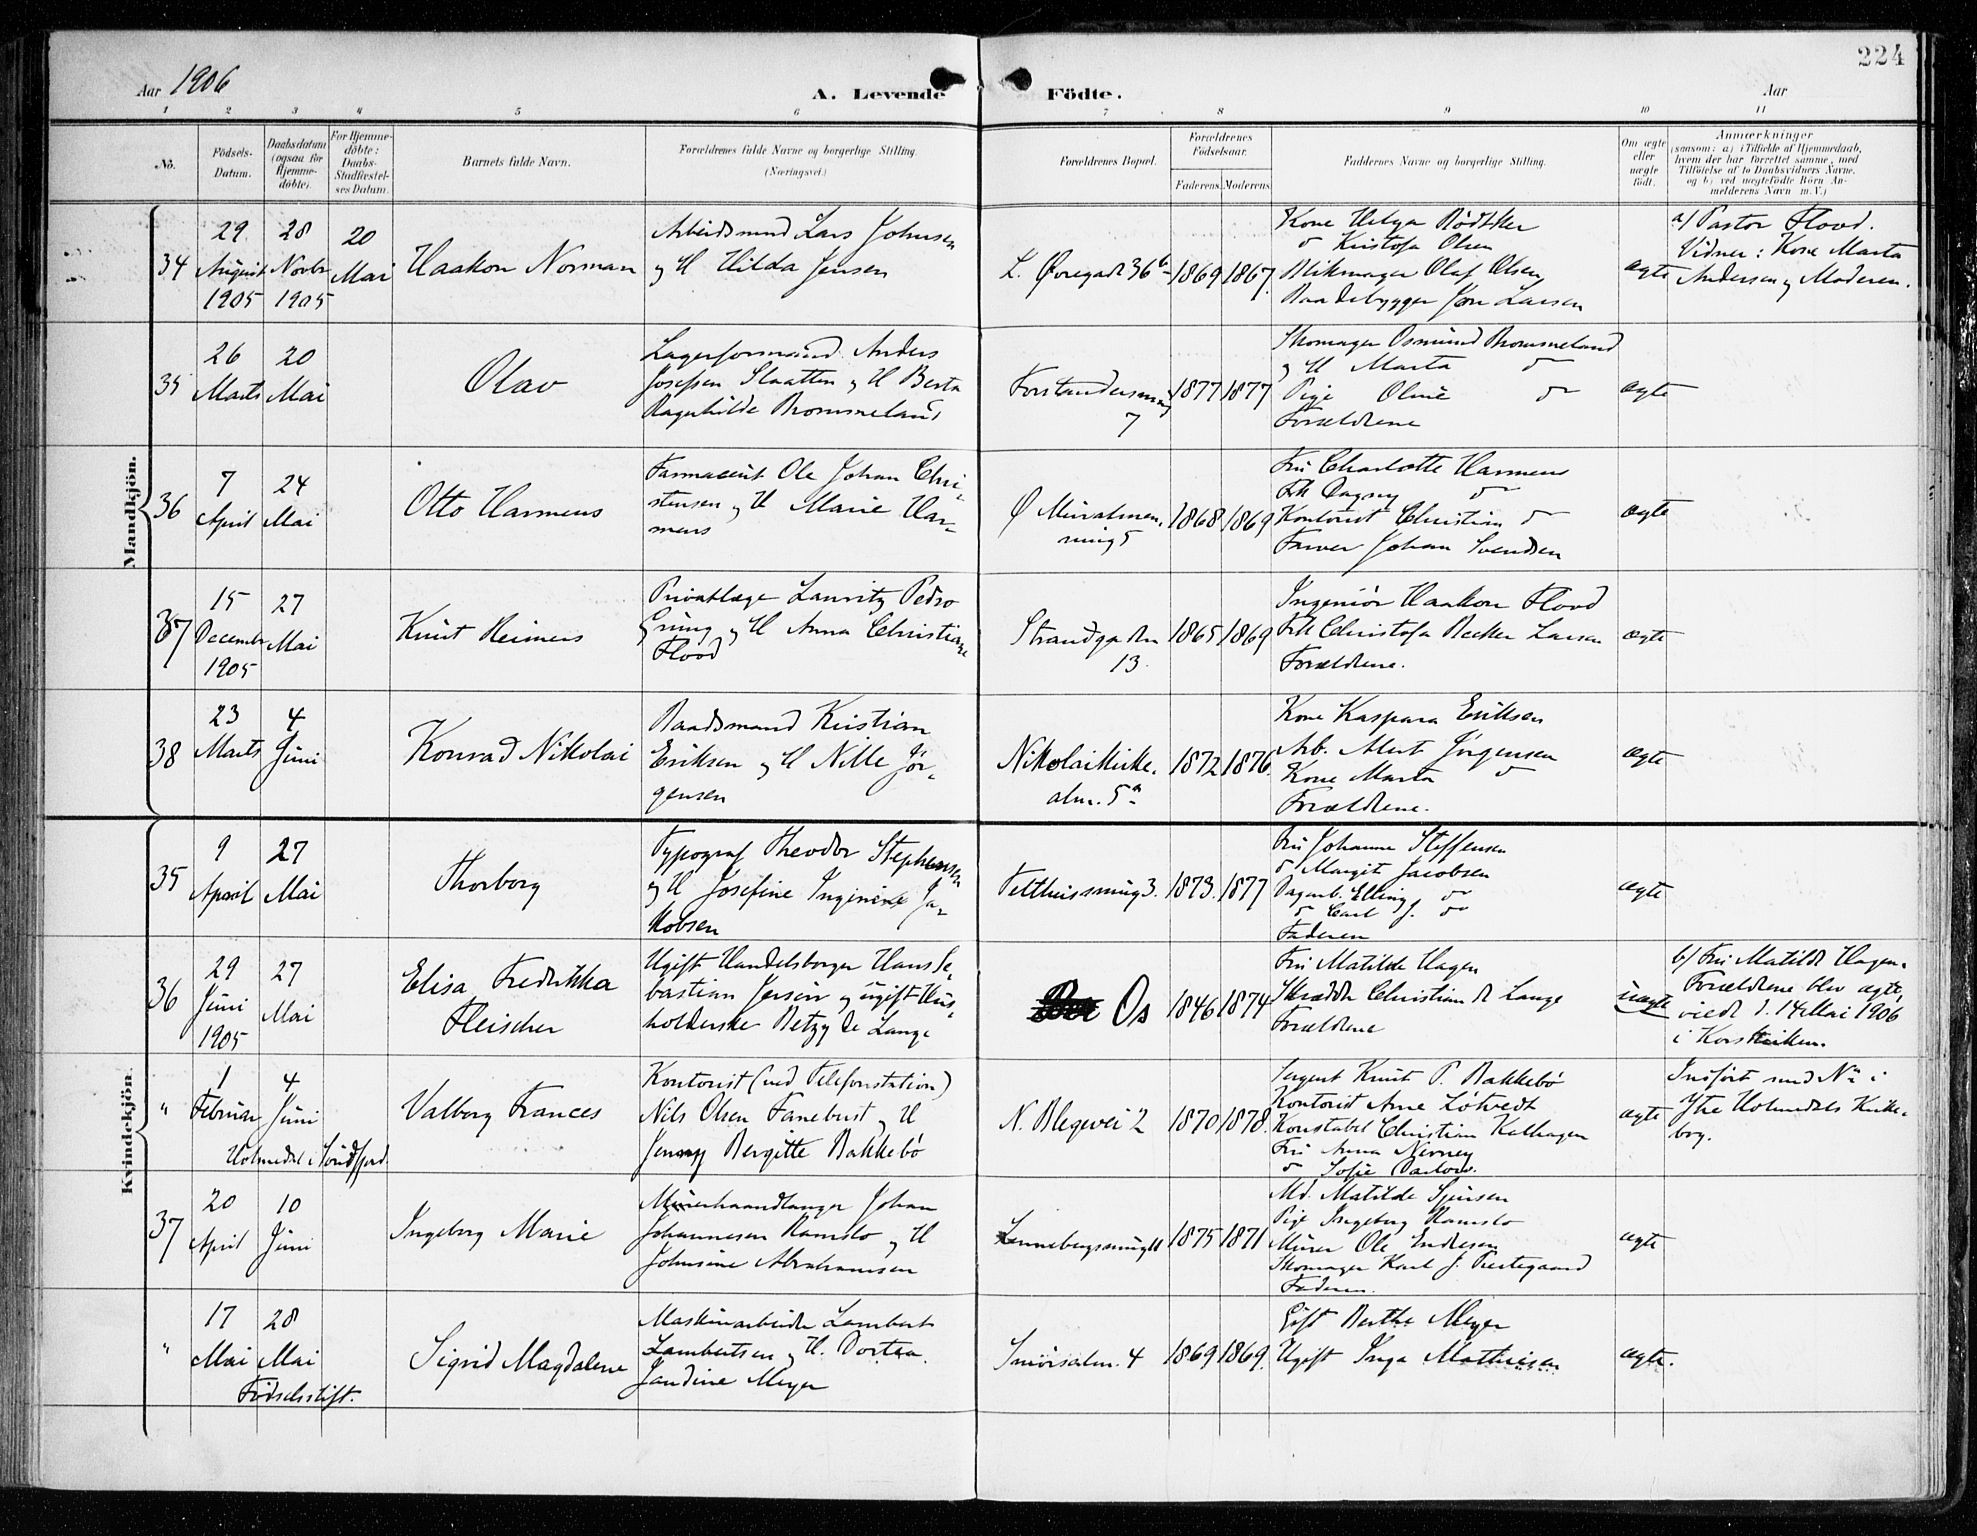 224
Aar 1906
A. Levende Födte.
Aar
1 2 3 4 5 6 7 8 9 10 11
No.
Födsels-Datum.
Daabsdatum (ogsaa for Hjemme-döbte).
For Hjemme-döbte: Daabs-Stadfæstel-ses Datum.
Barnets fulde Navn.
Forældrenes fulde Navne og borgerlige Stilling. (Næringsvei.)
Forældrenes Bopæl.
Forældrenes Födselsaar.
Faderens. Moderens.
Faddernes Navne og borgerlige Stilling.
Om ægte eller uægte födt.
Anmærkninger (saasom: a) i Tilfælde af Hjemmedaab, hvem der har forrettet samme, med Tilföielse af to Daabsvidners Navne, og b) ved uægtefödte Börn An-melderens Navn m.V.)
Mandkjön.
34
29 August 1905
28 Novbr 1905
20 Mai
Haakon Norman
Arbeidsmand Lars Johnsen
og H Hilda Jensen
L. Øvregade 36b
1869 1867.
Kone Helga Rødtker
do Kristofa Olsen
Blikmager Olaf Olsen
Baadebygger Jon Larsen
ægte
a) Pastor Flood.
Vidner: Kone Marta
Andersen og Moderen.
35
26 Marts
20 Mai
Olav
Lagerformand Anders
Josefsen Slaatten og H Berta
Ragnhilde Brommeland
Forstandersmug
7
1877 1877
Skomager Osmund Brommeland
og H Marta do
Pige Oline do
Forældrene
ægte
36
7 April
24 Mai
Otto Harmens
Farmaceut Ole Johan Chri-
stensen og H Marie Har-
mens
Ø Muralmen.
ning 5
1868 1869
Fru Charlotte Harmens
Frk Dagny do
Kontorist Christian do
Farver Johan Svendsen
ægte
37
15 December 1905
27 Mai
Knut Reimers
Privatlæge Lauritz Pedro
Grung og H Anna Christiane
Flood
Strandgaden
13.
1865 1869
Ingeniör Haakon Flood
Frk Christofa Becker Larsen
Forældrene.
ægte
38
23 Marts
4 Juni
Konrad Nikolai
Baadsmand Kristian
Eriksen og H Nille Jör-
gensen
Nikolaikirke.
alm. 5a
1872 1876
Kone Kaspara Eriksen
Arb. Alert Jörgensen
Kone Marta do
Forældrene.
ægte
Kvindekjön.
35
9 April
27 Mai
Thorborg
Typograf Theodor Stephensen
og H Josefine Ja-
kobsen
Felthussmug 3.
1873. 1877
Fru Johanne Steffensen
do Margit Jacobsen
Dagarb. Elling do
do Carl J. do
Faderen
ægte
36
29 Juni 1905
27 Mai
Elisa Fredrikka
Fleischer
Ugift Handelsborger Hans Se-
bastian og ugift Hus-
holderske Betzy de Lange
Os
1846 1874
Fru Matilde Hagen
Skrædder Christian de Lange
Forældrene
uægte
b) Fru Matilde Hagen.
Forældrene blev ægte.
viede d. 14 Mai 1906
i Korskirken.
"
1 Februar
4 Juni
Holmedal i Söndfjord.
Valborg Frances
Kontorist (ved Telefonstation)
Nils Olsen Fanebust og H
Jenny Bergitte Bakkebö
N. Blegevei 2
1870 1878.
Sergent Knut P. Bakkebö
Kontorist Arne Lötvedt
Konstabel Christian Kalhagen
Fru Anna
do Sofie
ægte
Indfört med No i
Ytre Holmedals Kirke-
bog.
37
20 April
10 Juni
Ingeborg Marie
Murerhaandlanger Johan
Johannesen Ramslo og H
Johnsine Abrahamsen
1875 1871
Md. Matilde Sjursen
Pige Ingeborg Ramslo
Murer Ole Endresen
Skomager Karl J.
Faderen.
ægte
"
17 Mai
28 Mai
Födselsstift.
Sigrid Magdalene
Maskinarbeider Lambert
Lambertsen og H. Dortea
Jandine Meyer
Smörsalm. 4
1869 1869.
Gift Berthe Meyer
Ugift Inga Mathiesen
ægte.